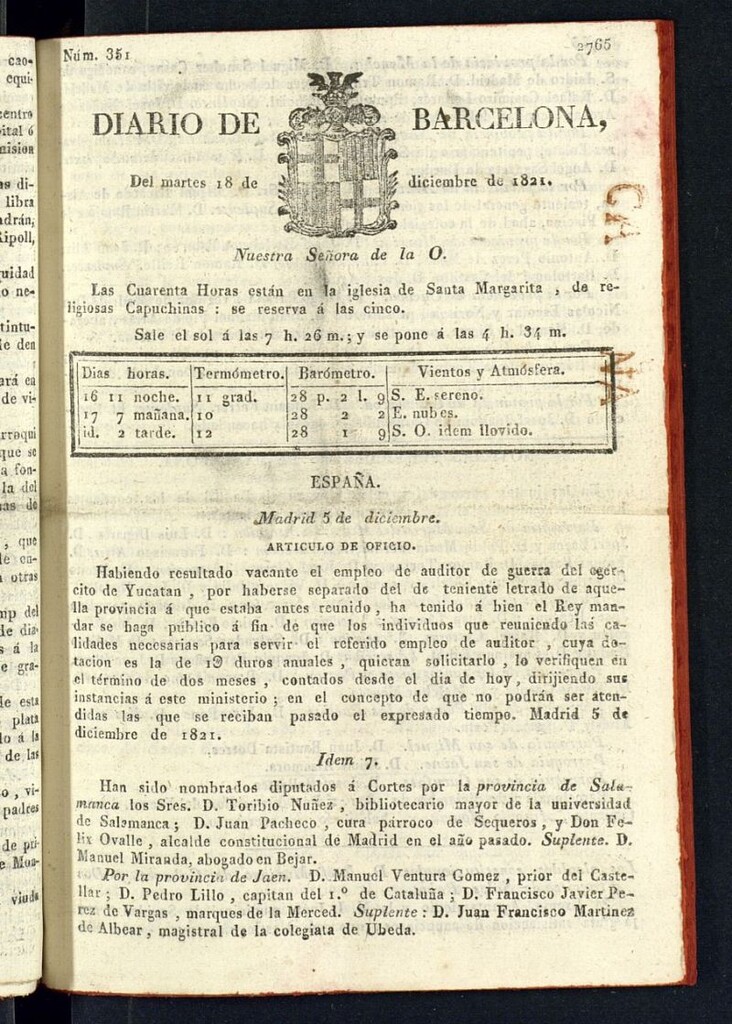 Núm. 351
2765
DIARIO DE BARCELONA,
Del martes 18 de diciembre de 1821.
Nuestra Señora de la O.
Las Cuarenta Horas están en la iglesia de Santa Margarita , de re-
ligiosas Capuchinas : se reserva á las cinco.
Sale el sol á las 7 h. 26 m.; y se pone á las 4 h. 34 m.
Dias horas. Termómetro. Barómetro. Vientos y Atmósfera.
16 11 noche. 11 grad. 28 p. 2 l. 9 S. E. sereno.
17 7 mañana. 10 28 2 2 E. nubes.
id. 2 tarde. 12 28 1 9 S. O. idem llovido.
ESPAÑA.
Madrid 5 de diciembre.
ARTICULO DE OFICIO.
Habiendo resultado vacante el empleo de auditor de guerra del eger-
cito de Yucatan , por haberse separado del de teniente letrado de aque-
lla provincia á que estaba antes reunido , ha tenido á bien el Rey man-
dar se haga público á fin de que los individuos que reuniendo las ca-
lidades necesarias para servir el referido empleo de auditor , cuya do-
tacion es la de duros anuales , quieran solicitarlo , lo verifiquen en
el término de dos meses , contados desde el dia de hoy, dirijiendo sus
instancias á este ministerio ; en el concepto de que no podrán ser aten-
didas las que se reciban pasado el expresado tiempo. Madrid 5 de
diciembre de 1821.
Idem 7.
Han sido nombrados diputados á Cortes por la provincia de Sala-
manca los Sres. D. Toribio Nuñez , bibliotecario mayor de la universidad
de Salamanca ; D. Juan Pacheco , cura párroco de Sequeros , y Don Fe-
lix Ovalle , alcalde constitucional de Madrid en el año pasado. Suplente. D.
Manuel Miranda, abogado en Bejar.
Por la provincia de Jaen. D. Manuel Ventura Gomez , prior del Caste-
llar ; D. Pedro Lillo , capitan del 1.º de Cataluña ; D. Francisco Javier Pe-
rez de Vargas , marques de la Merced. Suplente : D. Juan Francisco Martinez
de Albear , magistral de la colegiata de Ubeda.